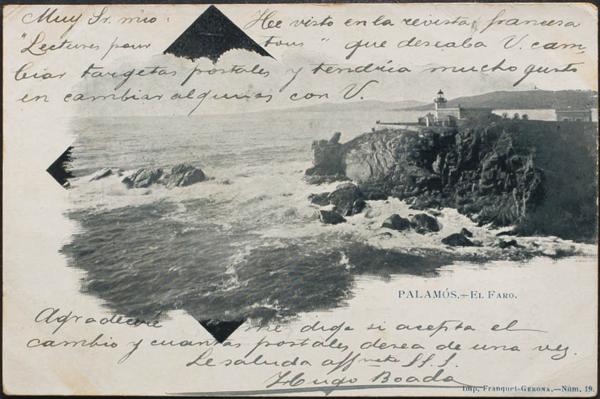 Muy Sr. mio: He visto en la revista francesa
"Lectures pour tous" que deseaba V. cam
biar targetas postales y tendría mucho gusto
en cambiar algunas con V.
PALAMÓS.—EL FARO.
Agradeceré me diga si acepta el
cambio y cuantas postales desea de una vez.
Le saluda affmte S.S.
Hugo Boada
Imp. Franquet-GERONA.—Núm. 19.